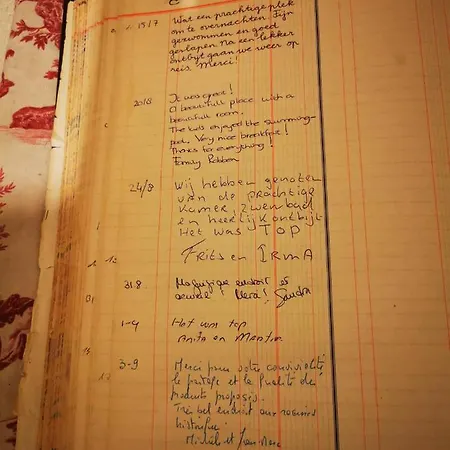 15/7 Wat een prachtige plek
om te overnachten. Fijn
gezwommen en goed
geslapen. Na een lekker
ontbijt gaan we weer op
reis. Merci!
20/8 It was great!
A beautifull place with a
beautifull room.
The kids enjoyed the swimming-
pool. Very nice breakfast!
Thanks for everything!
Family Robben
24/8 Wij hebben genoten
van de prachtige
kamer, zwembad
en heerlijk ontbijt.
Het was TOP
Frits en IRMA
12
31.8 Magnifique endroit et
accueil Merci! Sandra
1-9 Het was top
Anita en
3-9 Merci pour votre convivialité
le partage et la qualité des
produits proposés.
Très bel endroit aux racines
historique.
Michèle et Jean-Marc